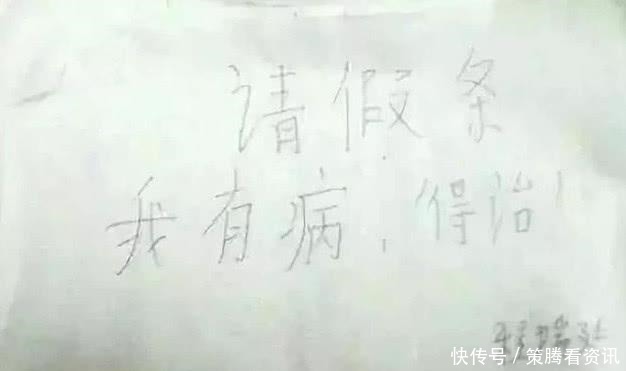 请假条
我有病,得治!
快传号/策腾看资讯